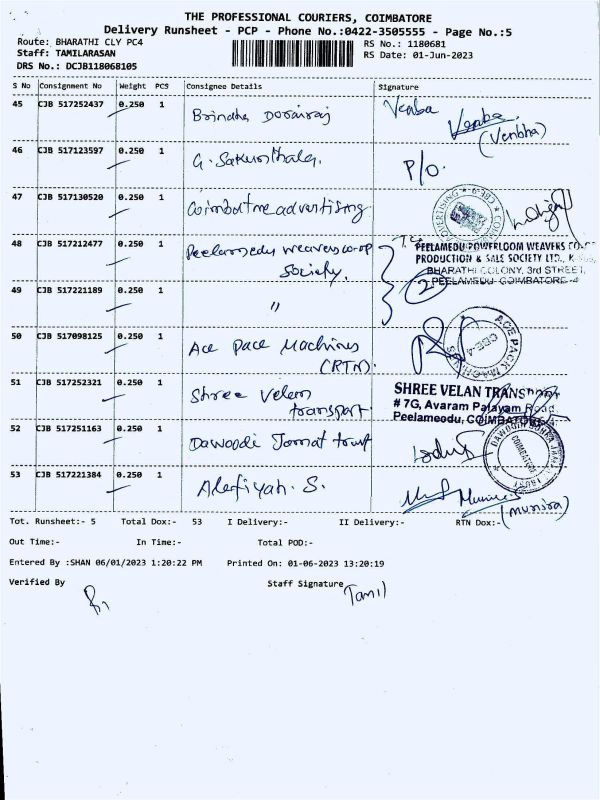 THE PROFESSIONAL COURIERS, COIMBATORE
Delivery Runsheet - PCP - Phone No.:0422-3505555 - Page No.:5
Route: BHARATHI CLY PC4
RS No.: 1180681
Staff: TAMILARASAN
RS Date: 01-Jun-2023
DRS No.: DCJB118068105
S No Consignment No Weight PCS Consignee Details Signature
45 CJB 517252437 0.250 1 Brindha Dorairaj Venba
Venba
(Venbha)
46 CJB 517123597 0.250 1 G. Sakunthala. P/O.
47 CJB 517130520 0.250 1 Coimbatore advertising
48 CJB 517212477 0.250 1 Peelamedu weavers co-op
Society.
PEELAMEDU POWERLOOM WEAVERS CO-OP
PRODUCTION & SALE SOCIETY LTD.,
BHARATHI COLONY, 3rd STREET,
PEELAMEDU COIMBATORE-4
49 CJB 517221189 0.250 1 "
2
50 CJB 517098125 0.250 1 Ace Pace Machines
(RTN).
ACE PACK MACHINES
CBE-4
51 CJB 517252321 0.250 1 Shree Velan
transport
SHREE VELAN TRANSPORT
# 7G, Avaram Palayam Road,
Peelameodu, COIMBATORE-4.
52 CJB 517251163 0.250 1 Dawoodi Jamat trust
COIMBATORE
53 CJB 517221384 0.250 1 Alefiyah. S.
Munira
(munira)
Tot. Runsheet:- 5 Total Dox:- 53 I Delivery:- II Delivery:- RTN Dox:-
Out Time:- In Time:- Total POD:-
Entered By :SHAN 06/01/2023 1:20:22 PM Printed On: 01-06-2023 13:20:19
Verified By Staff Signature
Tamil